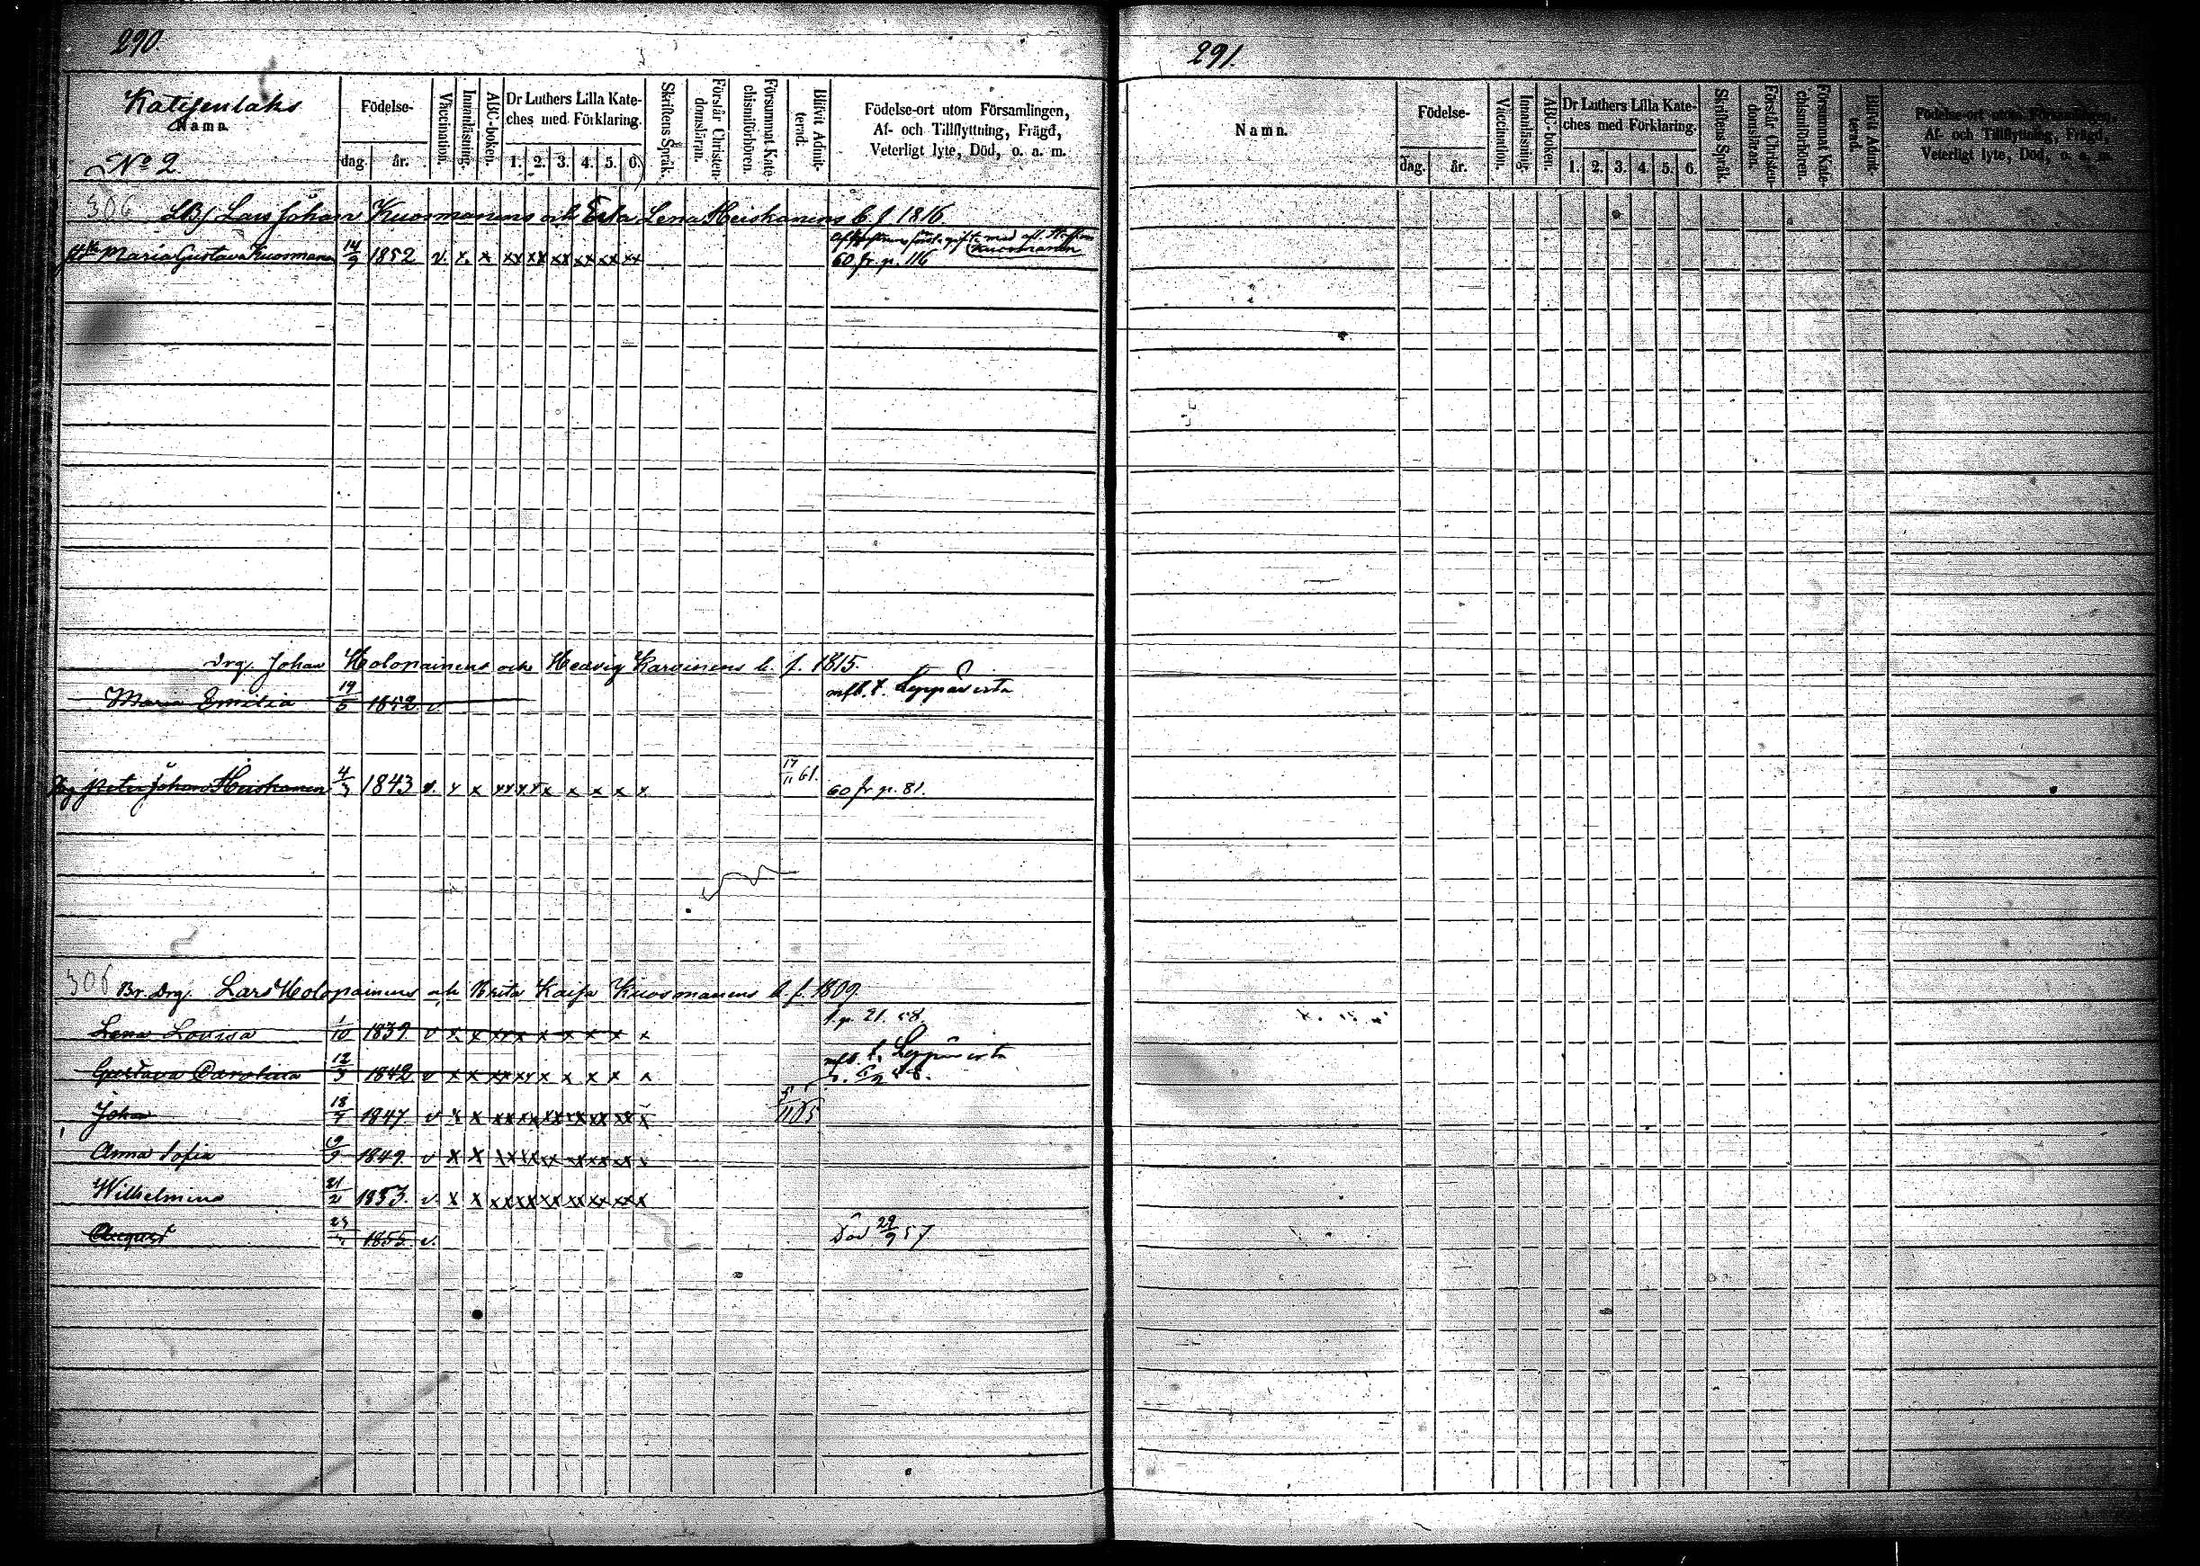 290.
Namn.
No 2.
Födelse-
dag. år.
Vaccination.
Innanläsning.
ABC-boken.
Dr Luthers Lilla Kate-
ches med Förklaring.
1. 2. 3. 4. 5. 6.
Skriftens Språk.
Förstår Christen-
domsläran.
Försummat Kate-
chismiförhören.
Blifvit Admit-
terad.
Födelse-ort utom Församlingen,
Af- och Tillflyttning, Frägd,
Veterligt lyte, Död, o. a. m.
306 Lars Johan Kuosmanens och Lena Heiskanens b. f. 1816
Maria Gustava Kuosmanen 14/9 1852 v. x. x xx xx xx xx xx xx
Kuosmanen
60 fr. p. 116
Drg. Johan Holopainens och Hedvig Karvinens b. f. 1815.
Maria Emilia 19/5 1852 v. Leppävirta
Peter Johan Heiskanen 1843 v. x x xx xx x x x x x 17/11 61. 60 fr p. 81.
306 Br. Drg. Lars Holopainens och Brita Kaisa Kuosmanens b. f. 1809.
Lena Lovisa 1/10 1839. v x x xx x x x x x x t. p. 21. 58.
Gustava Carolina 12/3 1842 v x x xx xx x x x x x Leppävirta
Johan 18/7 1847. v x x xx xx xx xx xx xx x
Anna Sofia 1849. v x x xx xx xx xx xx xx x
Wilhelmina 21/2 1853. v. x x xx xx xx xx xx xx x
August 1855 v. Död 29/9 57
291.
Namn.
Födelse-
dag. år.
Vaccination.
Innanläsning.
ABC-boken.
Dr Luthers Lilla Kate-
ches med Förklaring.
1. 2. 3. 4. 5. 6.
Skriftens Språk.
Förstår Christen-
domsläran.
Försummat Kate-
chismiförhören.
Blifvit Admit-
terad.
Födelse-ort utom Församlingen,
Af- och Tillflyttning, Frägd,
Veterligt lyte, Död, o. a. m.